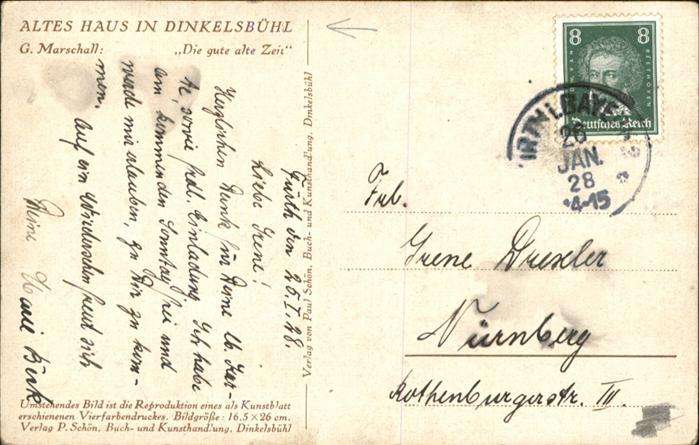 ALTES HAUS IN DINKELSBÜHL
G. Marschall: „Die gute alte Zeit"
Fürth den 25.I.28.
Liebe Irene!
Herzlichen Dank für Deine lb. Kar-
te, sowie frdl. Einladung. Ich habe
am kommenden Sonntag frei und
werde mir erlauben, zu Dir zu kom-
men. Auf ein Wiedersehen freut sich
Deine
Umstehendes Bild ist die Reproduktion eines als Kunstblatt
erschienenen Vierfarbendruckes. Bildgröße: 16,5×26 cm.
Verlag P. Schön, Buch- und Kunsthandlung, Dinkelsbühl
Verlag von Paul Schön, Buch- und Kunsthandlung, Dinkelsbühl
8 8
BEETHOVEN
Deutsches Reich
JAN.
28
4-15
Frl.
Irene Drexler
Nürnberg
Rothenburgerstr. III.